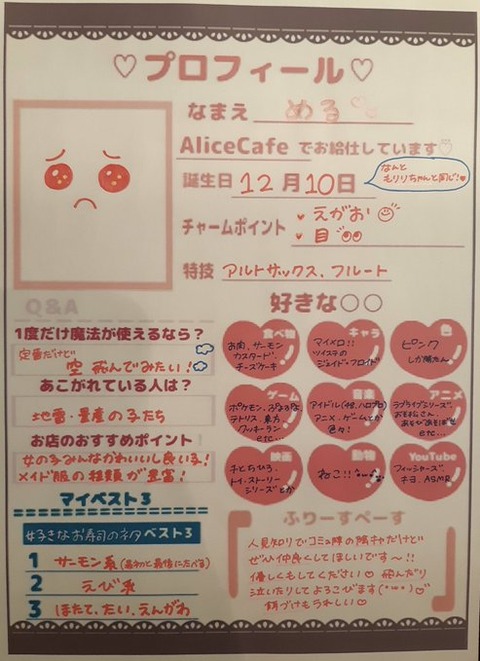 ♡プロフィール♡
なまえ める
AliceCafe でお給仕しています
誕生日 12月10日
なんと
もりりちゃんと同じ!
チャームポイント
♥ えがお
♥ 目
特技 アルトサックス、フルート
Q&A
1度だけ魔法が使えるなら?
定番だけど
空 飛んでみたい!
あこがれている人は?
地雷・量産の子たち
お店のおすすめポイント
女の子みんなかわいいし良いる!
メイド服の種類が豊富!
マイベスト3
#好きなお寿司のネタベスト3
1 サーモン系(最初と最後にたべる)
2 えび系
3 ほたて、たい、えんがわ
好きな○○
食べ物
お肉、サーモン
カスタード
チーズケーキ
キャラ
マイメロ!!
ツイステの
ジェイド・フロイド
色
ピンク
しか勝たん
ゲーム
ポケモン、ぷよぷよ
テトリス 東方
クッキーラン
etc...
音楽
アイドル(48、ハロプロ)
アニメ、ゲームとか
色々!
アニメ
ラブライブシリーズ
おそ松さん、
あそびあそばせ
etc...
映画
千とちひろ、
トイ・ストーリー
シリーズとか
動物
ねこ!!
YouTube
フィッシャーズ
キヨ ASMR
ふりーすぺーす
人見知りでコミュ障の陰キャだけど
ぜひ仲良くしてほしいです〜!!
優しくもしてください♡ 飛んだり
泣いたりしてよろこびます
餌づけもうれしい♡